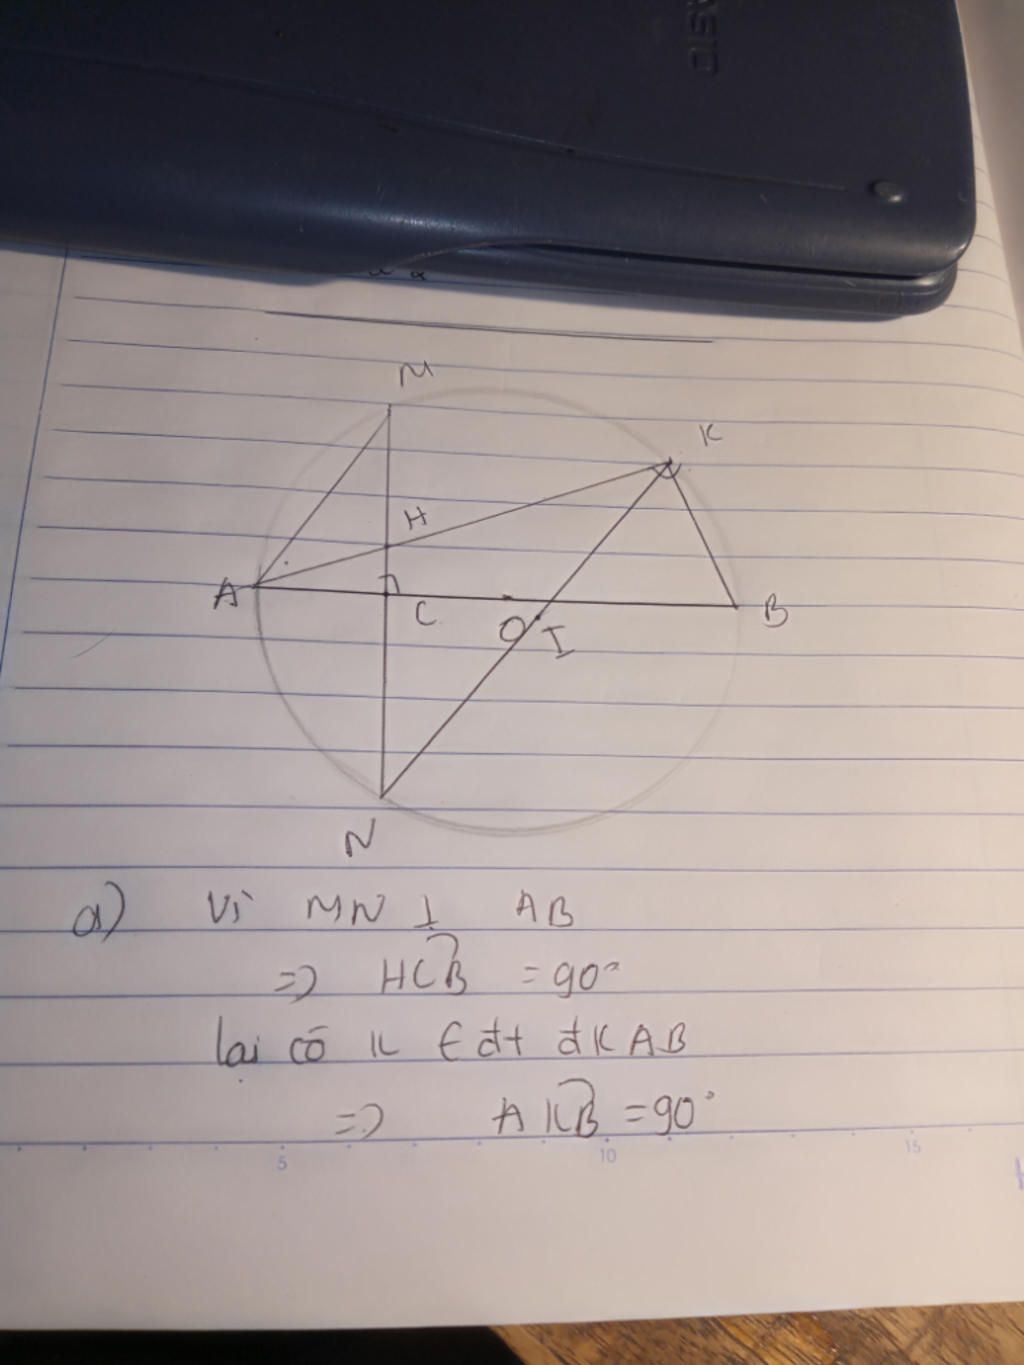 ASIO
M
K
H
A
C
O
I
B
N
a) Vì MN ⊥ AB
=> HCB = 90°
lại có K ∈ đt đK AB
=> AKB = 90°
5 10 15